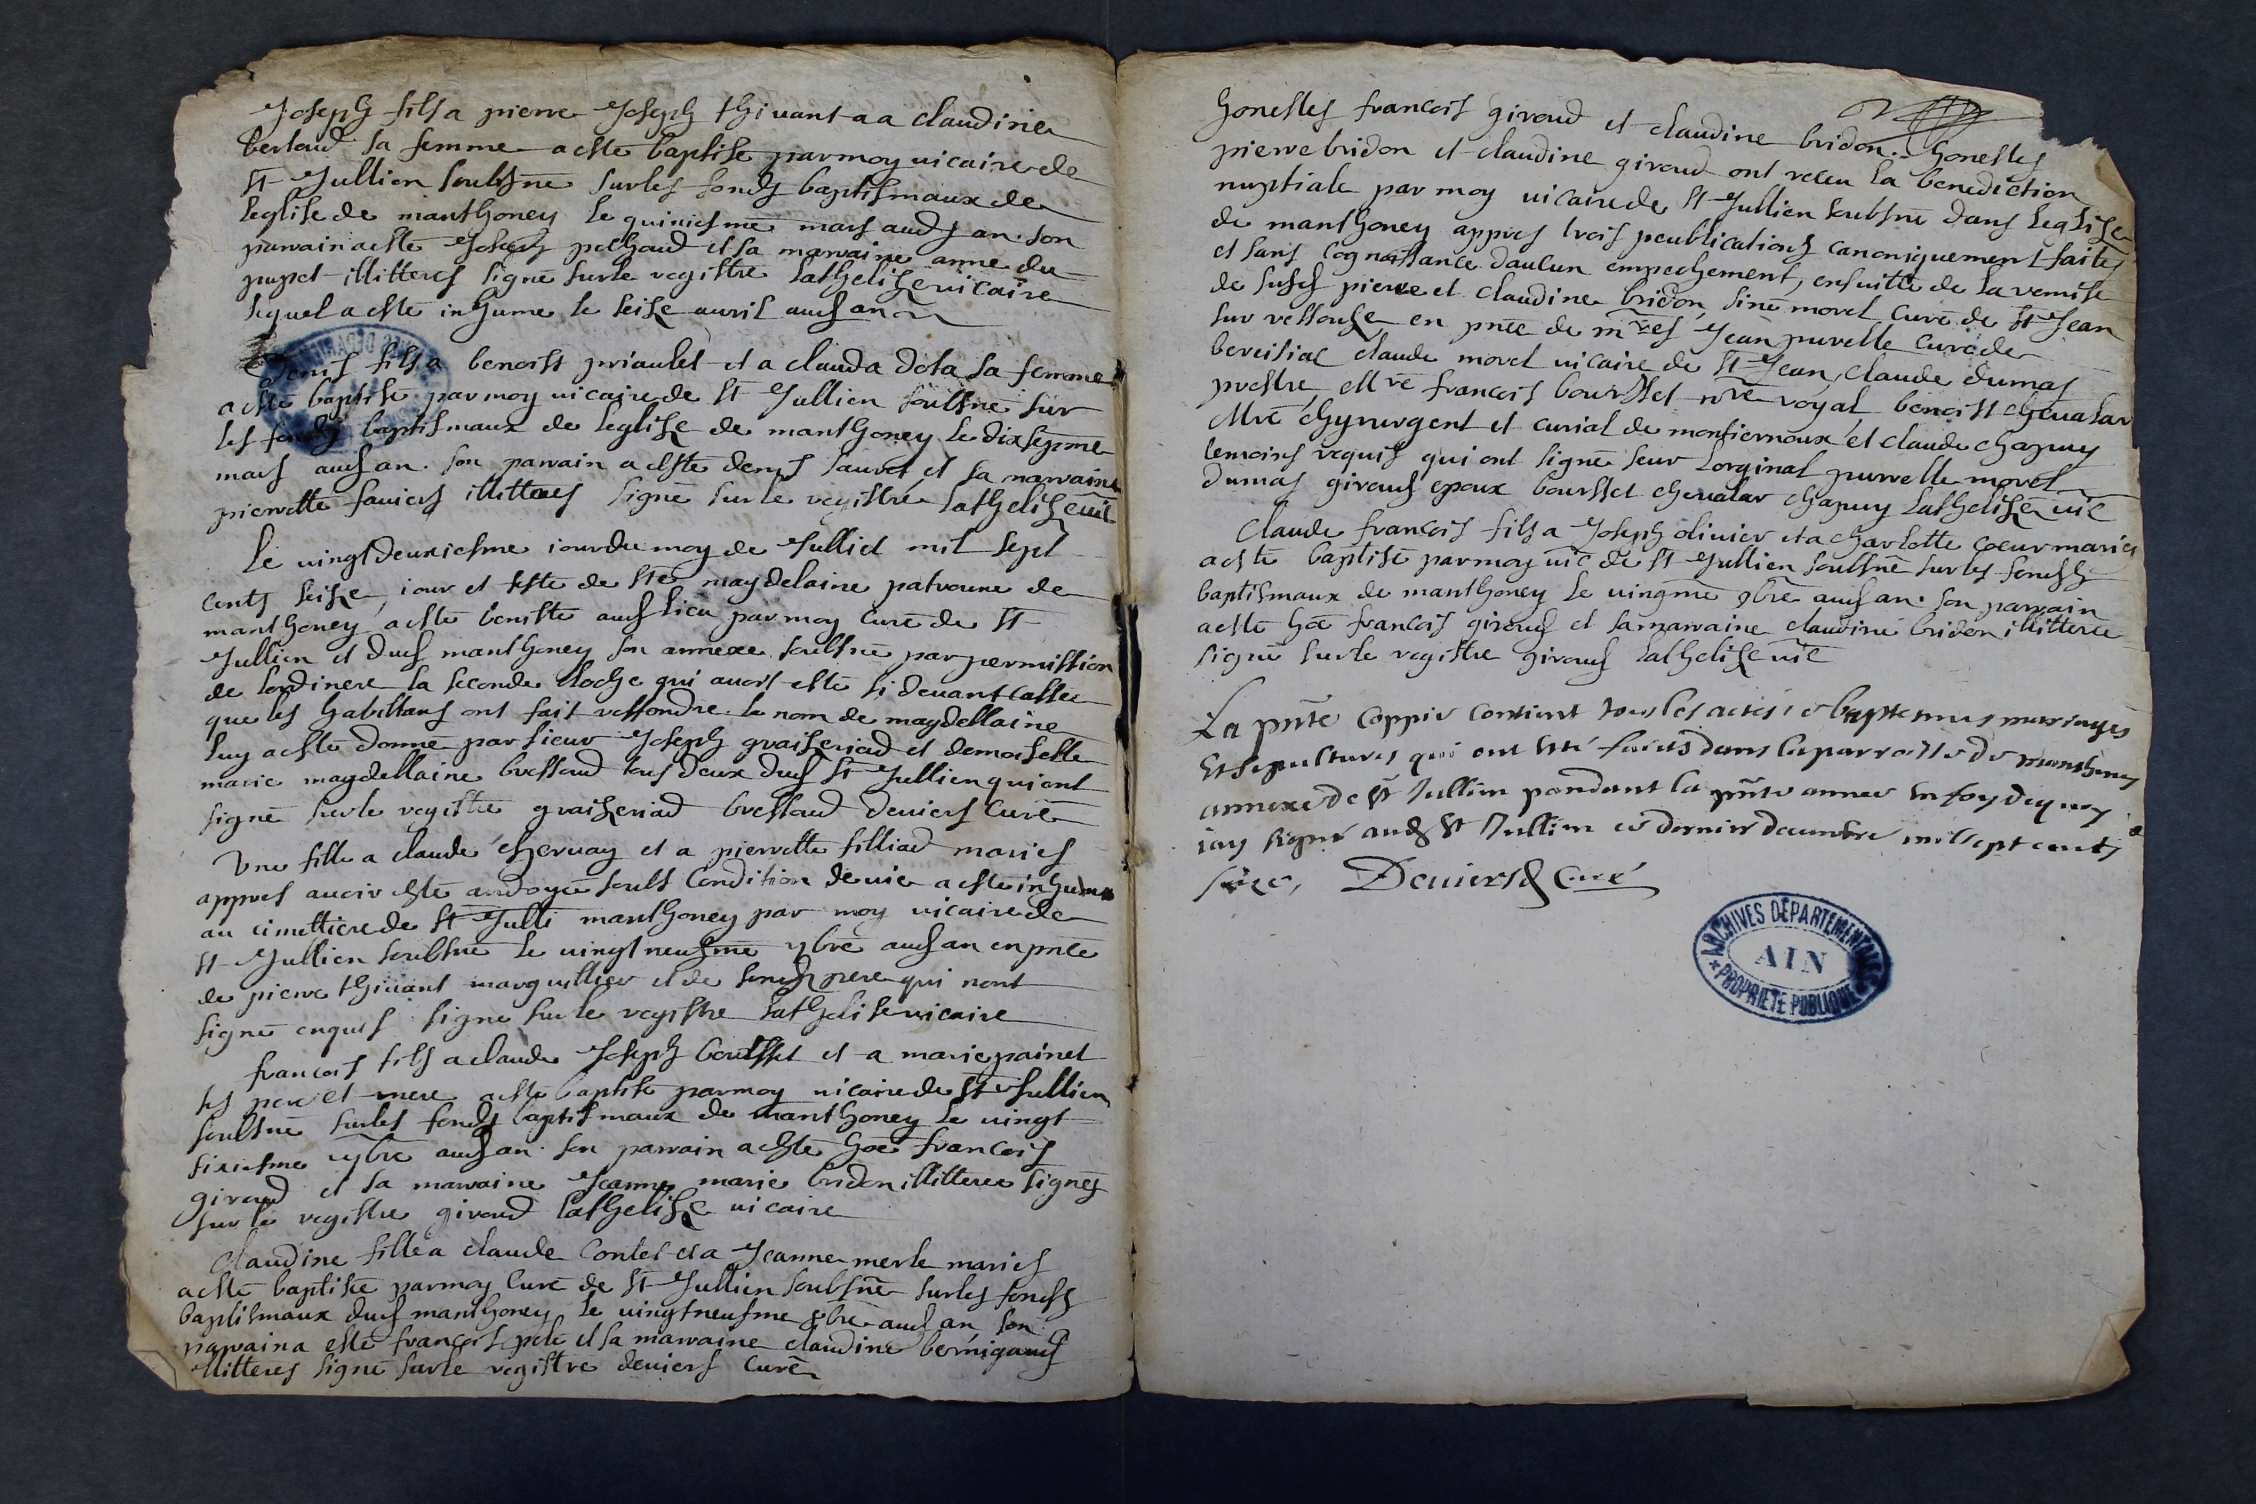 Joseph fils a pierre Joseph thivant a a claudine
berlaud sa femme a esté baptisé par moy vicaire de
St Jullien soubsné sur les fonds baptismaux de
leglise de manthoney le quiniesme mars audt an son
parrain a esté Joseph pochaud et sa marraine anne du
pupet illitteres signé sur le registre Lathelise vicaire
lequel a esté inhumé le seise avril aud an
Denis fils a benoist priaulet et a clauda dota sa femme
a esté baptisé par moy vicaire de St Jullien soubsné sur
les fonds baptismaux de leglise de manthoney le dixsepme
mars aud an. son parrain a esté denys sauvet et sa marraine
pierrette faviers illitteres signé sur le registre Lathelise vic
Le vingtdeuxiesme iour du moy de Julliet mil sept
cents seise, iour et feste de Ste maydelaine patronne de
manthoney a esté beniste aud lieu par moy curé de St
Jullien et dud manthoney son annexe soubsné par permission
de lordinere la seconde cloche qui avoit esté si devant cassée
que les habittans ont fait reffondre le nom de maydellaine
luy a esté donné par sieur Joseph graiseriad et demoiselle
marie maydellaine bressaud tous deux dud St Jullien qui ont
signé sur le registre graiseriad bressaud deviers curé
Une fille a claude chervay et a pierrette filliad maries
appres avoir esté andoyée soubs condition de vie a esté inhumé
au cimettiere de St Julli manthoney par moy vicaire de
St Jullien soubsné le vingt neufme 7bre aud an en pnce
de pierre thivant marguillier et de sond pere qui nont
signé enquis signé sur le registre Lathelise vicaire
francois fils a claude Joseph bousset et a marie painet
ses pere et mere a esté baptisé par moy vicaire de St Jullien
soubsné sur les fonds baptismaux de manthoney le vingt
sixiesme 7bre aud an son parrain a esté hoe francois
giroud et sa marraine Jeanne marie bridon illitteree signes
sur le registre giroud Lathelise vicaire
Claudine fille a claude contet et a Jeanne merle maries
a esté baptisée par moy curé de St Jullien soubsné sur les fonds
baptismaux dud manthoney le vingtneufme 8bre aud an son
parrain a esté francois pelé et sa marraine claudine bernigaud
illitteres signé sur le registre deviers curé
honestes francois giroud et claudine bridon. honestes
pierre bridon et claudine giroud ont receu la benediction
nuptiale par moy vicaire de St Jullien soubsné dans leglise
de manthoney appres trois peublications canoniquement faites
et sans cognoissance daucun empechement, ensuitte de la remise
de susd pierre et claudine bridon, siné morel curé de St Jean
sur ressouse, en pnce de mres Jean purvelle curé de
bereisiac claude morel vicaire de St Jean, claude dumas
prestre, et Mre francois boursset nre royal benoist chevalar
Mre chyrurgent et curial de montiernoux et claude chapuy
temoins requis qui ont signé seur lorginal purvelle morel
dumas giroud epoux boursset chevalar chapuy Lathelise vic
Claude francois fils a Joseph olivier et a charlotte coeur maries
a esté baptisé par moy vic de St Jullien soubsné sur les fonds
baptismaux de manthoney le vingme 9bre aud an. son parrain
a esté hoe francois giroud et sa marraine claudine bridon illitterée
signé sur le registre giroud Lathelise vic
La pnte coppie contient tous les actes de baptesmes mariages
et sepultures qui ont esté faicts dans la parroisse de manthoney
annexe de St Jullien pendant la pnte année en foy de quoy
iay signé aud St Jullien ce dernier decembre mil sept cents
seize, Deviers Curé
ARCHIVES DÉPARTEMENTALES
AIN
PROPRIÉTÉ PUBLIQUE